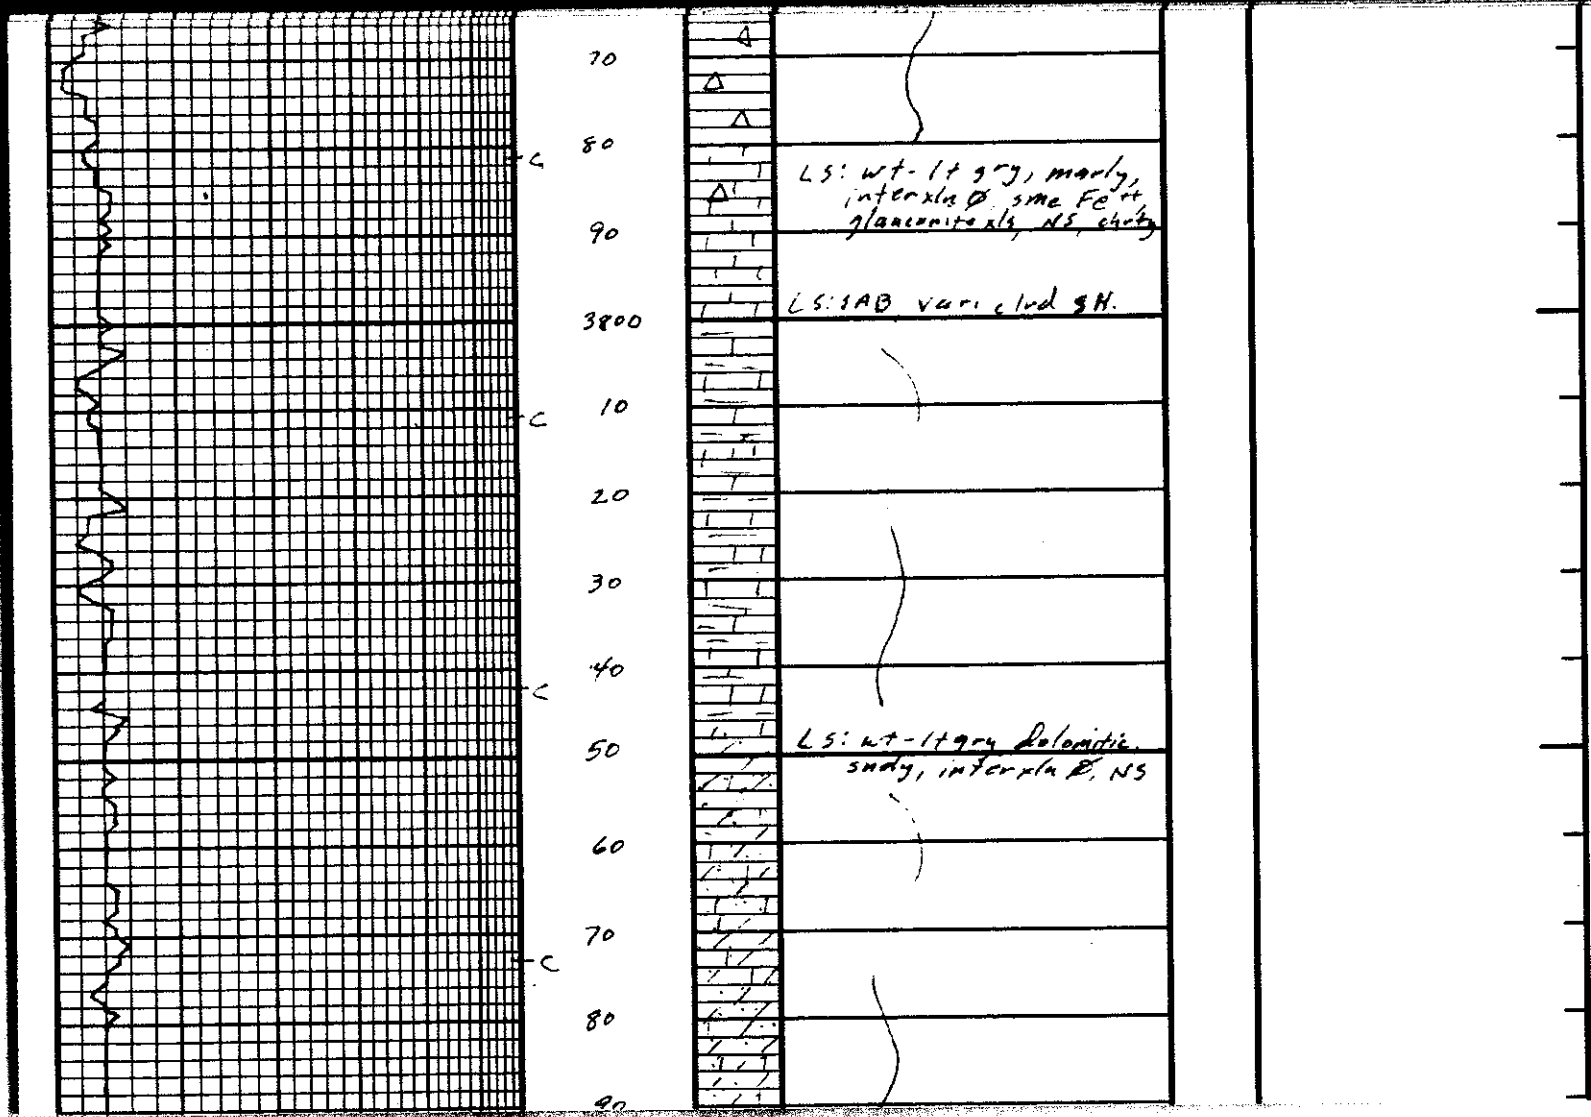 70
80
C
LS: wt-lt gry, marly,
interxln Ø sme Fe++,
glauconite xls, NS, chrty
90
LS: SAB vari clrd SH.
3800
10
C
20
30
40
C
50
LS: wt-lt gry dolomitic,
sndy, interxln Ø, NS
60
70
C
80
90